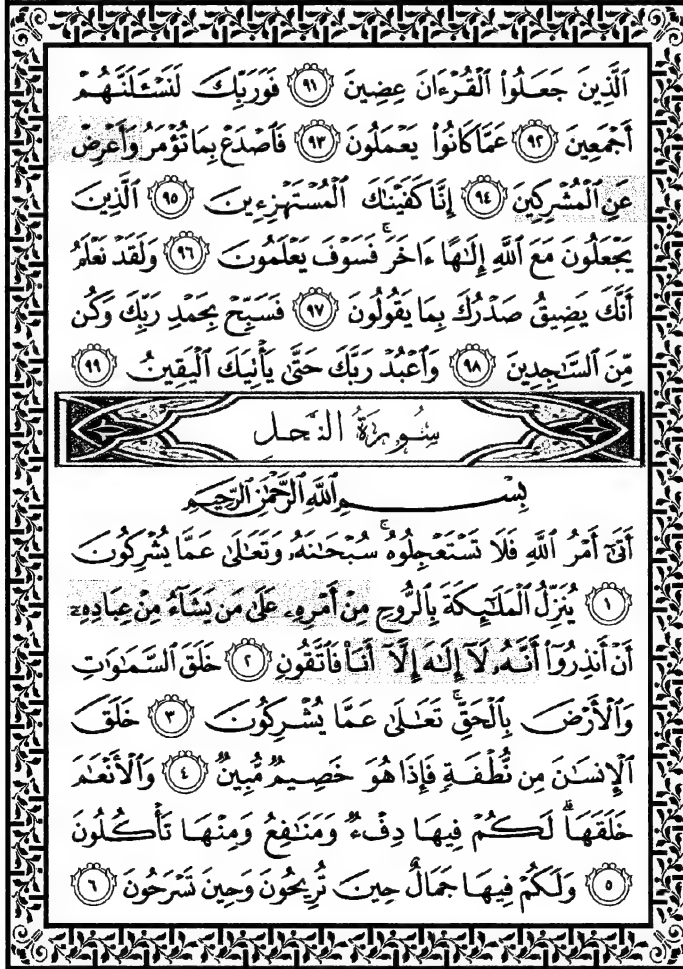 ٱلَّذِينَ جَعَلُواْ ٱلْقُرْءَانَ عِضِينَ ٩١ فَوَرَبِّكَ لَنَسْـَٔلَنَّهُمْ
أَجْمَعِينَ ٩٢ عَمَّا كَانُواْ يَعْمَلُونَ ٩٣ فَٱصْدَعْ بِمَا تُؤْمَرُ وَأَعْرِضْ
عَنِ ٱلْمُشْرِكِينَ ٩٤ إِنَّا كَفَيْنَٰكَ ٱلْمُسْتَهْزِءِينَ ٩٥ ٱلَّذِينَ
يَجْعَلُونَ مَعَ ٱللَّهِ إِلَٰهًا ءَاخَرَ ۚ فَسَوْفَ يَعْلَمُونَ ٩٦ وَلَقَدْ نَعْلَمُ
أَنَّكَ يَضِيقُ صَدْرُكَ بِمَا يَقُولُونَ ٩٧ فَسَبِّحْ بِحَمْدِ رَبِّكَ وَكُن
مِّنَ ٱلسَّٰجِدِينَ ٩٨ وَٱعْبُدْ رَبَّكَ حَتَّىٰ يَأْتِيَكَ ٱلْيَقِينُ ٩٩
سُورَةُ النَّحْلِ
بِسْمِ ٱللَّهِ ٱلرَّحْمَٰنِ ٱلرَّحِيمِ
أَتَىٰٓ أَمْرُ ٱللَّهِ فَلَا تَسْتَعْجِلُوهُ ۚ سُبْحَٰنَهُۥ وَتَعَٰلَىٰ عَمَّا يُشْرِكُونَ
١ يُنَزِّلُ ٱلْمَلَٰٓئِكَةَ بِٱلرُّوحِ مِنْ أَمْرِهِۦ عَلَىٰ مَن يَشَآءُ مِنْ عِبَادِهِۦٓ
أَنْ أَنذِرُوٓاْ أَنَّهُۥ لَآ إِلَٰهَ إِلَّآ أَنَا۠ فَٱتَّقُونِ ٢ خَلَقَ ٱلسَّمَٰوَٰتِ
وَٱلْأَرْضَ بِٱلْحَقِّ ۚ تَعَٰلَىٰ عَمَّا يُشْرِكُونَ ٣ خَلَقَ
ٱلْإِنسَٰنَ مِن نُّطْفَةٍ فَإِذَا هُوَ خَصِيمٌ مُّبِينٌ ٤ وَٱلْأَنْعَٰمَ
خَلَقَهَا ۗ لَكُمْ فِيهَا دِفْءٌ وَمَنَٰفِعُ وَمِنْهَا تَأْكُلُونَ
٥ وَلَكُمْ فِيهَا جَمَالٌ حِينَ تُرِيحُونَ وَحِينَ تَسْرَحُونَ ٦